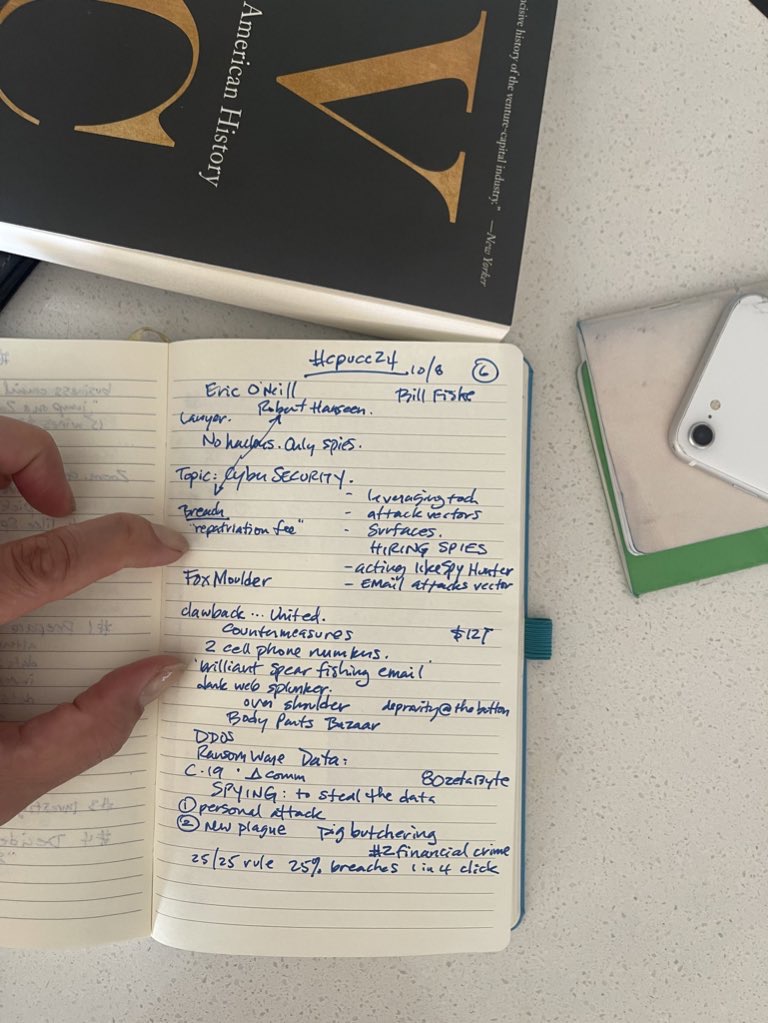 VC
American History
cisive history of the venture-capital industry." —New Yorker
#cpucc24 10/8 6
Eric O'Neill Bill Fiske
Lawyer. Robert Hanseen.
No hackers. Only spies.
Topic: Cyber SECURITY.
- leveraging tech
Breach - attack vectors
"repatriation fee" - Surfaces.
HIRING SPIES
- acting like Spy Hunter
Fox Moulder - EMail attacks vector
clawback ... United.
Countermeasures $12T
2 cell phone numbers.
'brilliant spear fishing email'
dark web splunker.
over shoulder depravity@the bottom
Body Parts Bazaar
DDOS
Ransom Ware Data:
C.19 · Δ comm 80 zetaByte
SPYING: to steal the data
① personal attack
② New plague Pig butchering
#2 financial crime
25/25 rule 25% breaches 1 in 4 click